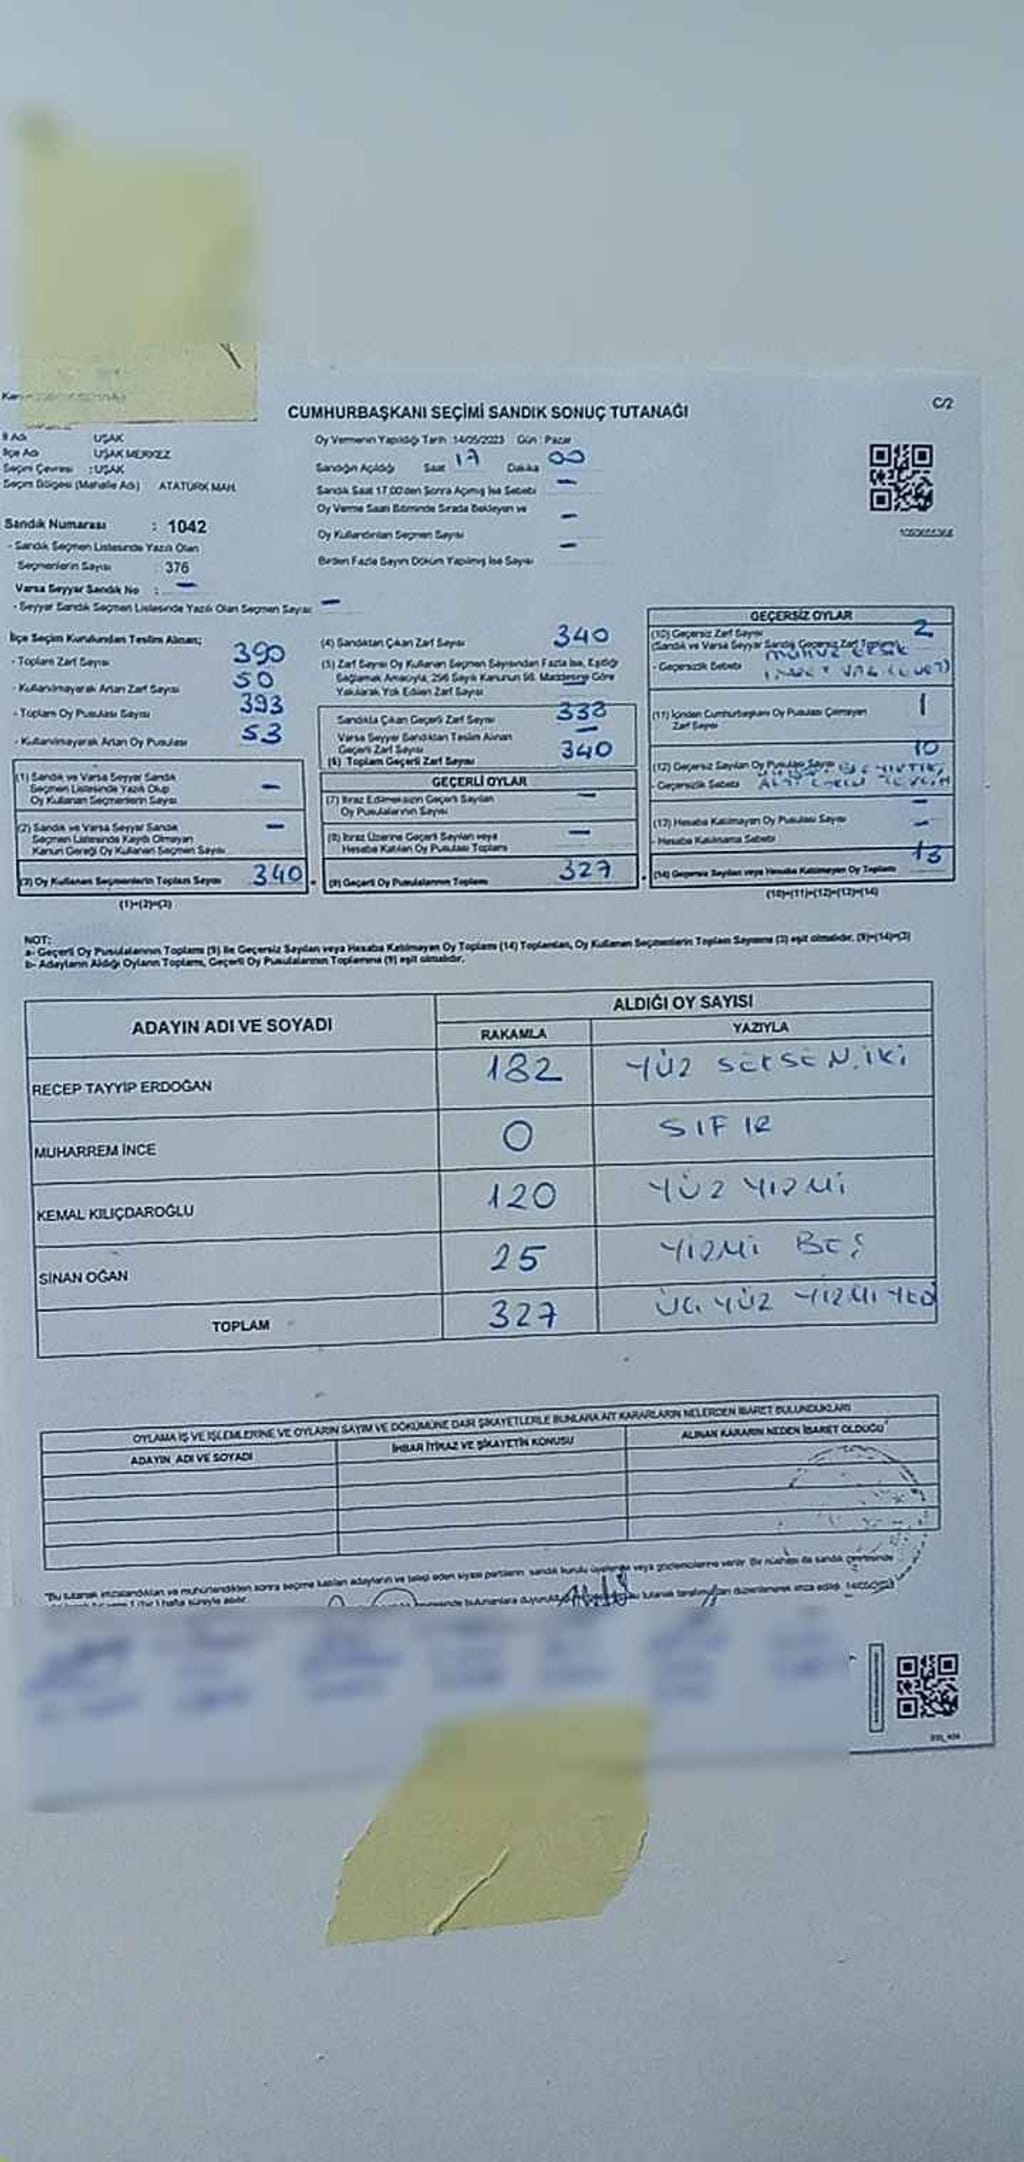 CUMHURBAŞKANI SEÇİMİ SANDIK SONUÇ TUTANAĞI
C/2
İl Adı UŞAK
İlçe Adı UŞAK MERKEZ
Seçim Çevresi : UŞAK
Seçim Bölgesi (Mahalle Adı) ATATÜRK MAH.
Sandık Numarası : 1042
- Sandık Seçmen Listesinde Yazılı Olan
Seçmenlerin Sayısı : 376
Varsa Seyyar Sandık No : -
- Seyyar Sandık Seçmen Listesinde Yazılı Olan Seçmen Sayısı -
Oy Vermenin Yapıldığı Tarih : 14/05/2023 Gün : Pazar
Sandığın Açıldığı Saat 17 Dakika 00
Sandık Saat 17:00'den Sonra Açılmış İse Sebebi -
Oy Verme Saati Bitiminde Sırada Bekleyen ve
Oy Kullandırılan Seçmen Sayısı -
Birden Fazla Sayım Döküm Yapılmış İse Sayısı -
İlçe Seçim Kurulundan Teslim Alınan;
- Toplam Zarf Sayısı 390
- Kullanılmayarak Artan Zarf Sayısı 50
- Toplam Oy Pusulası Sayısı 393
- Kullanılmayarak Artan Oy Pusulası 53
(1) Sandık ve Varsa Seyyar Sandık
Seçmen Listesinde Yazılı Olup
Oy Kullanan Seçmenlerin Sayısı -
(2) Sandık ve Varsa Seyyar Sandık
Seçmen Listesinde Kayıtlı Olmayan
Kanun Gereği Oy Kullanan Seçmen Sayısı -
(3) Oy Kullanan Seçmenlerin Toplam Sayısı 340
(1)+(2)=(3)
(4) Sandıktan Çıkan Zarf Sayısı 340
(5) Zarf Sayısı Oy Kullanan Seçmen Sayısından Fazla İse, Eşitliği
Sağlamak Amacıyla, 298 Sayılı Kanunun 98. Maddesine Göre
Yakılarak Yok Edilen Zarf Sayısı -
Sandıkta Çıkan Geçerli Zarf Sayısı 338
Varsa Seyyar Sandıktan Teslim Alınan
Geçerli Zarf Sayısı -
(6) Toplam Geçerli Zarf Sayısı 340
GEÇERLİ OYLAR
(7) İtiraz Edilmeksizin Geçerli Sayılan
Oy Pusulalarının Sayısı -
(8) İtiraz Üzerine Geçerli Sayılan veya
Hesaba Katılan Oy Pusulası Toplamı -
(9) Geçerli Oy Pusulalarının Toplamı 327
GEÇERSİZ OYLAR
(10) Geçersiz Zarf Sayısı 2
(Sandık ve Varsa Seyyar Sandık Geçersiz Zarf Toplamı)
- Geçersizlik Sebebi
(11) İçinden Cumhurbaşkanı Oy Pusulası Çıkmayan
Zarf Sayısı 1
(12) Geçersiz Sayılan Oy Pusulası Sayısı 10
- Geçersizlik Sebebi
(13) Hesaba Katılmayan Oy Pusulası Sayısı -
- Hesaba Katılmama Sebebi -
(14) Geçersiz Sayılan veya Hesaba Katılmayan Oy Toplamı 13
(10)+(11)+(12)+(13)=(14)
NOT:
a- Geçerli Oy Pusulalarının Toplamı (9) ile Geçersiz Sayılan veya Hesaba Katılmayan Oy Toplamı (14) Toplamları, Oy Kullanan Seçmenlerin Toplam Sayısına (3) eşit olmalıdır. (9)+(14)=(3)
b- Adayların Aldığı Oyların Toplamı, Geçerli Oy Pusulalarının Toplamına (9) eşit olmalıdır.
ADAYIN ADI VE SOYADI ALDIĞI OY SAYISI
RAKAMLA YAZIYLA
RECEP TAYYİP ERDOĞAN 182 YÜZ SEKSEN İKİ
MUHARREM İNCE 0 SIFIR
KEMAL KILIÇDAROĞLU 120 YÜZ YİRMİ
SİNAN OĞAN 25 YİRMİ BEŞ
TOPLAM 327 ÜÇ YÜZ YİRMİ YEDİ
OYLAMA İŞ VE İŞLEMLERİNE VE OYLARIN SAYIM VE DÖKÜMÜNE DAİR ŞİKAYETLERLE BUNLARA AİT KARARLARIN NELERDEN İBARET BULUNDUKLARI
ADAYIN ADI VE SOYADI İHBAR İTİRAZ VE ŞİKAYETİN KONUSU ALINAN KARARIN NEDEN İBARET OLDUĞU
"Bu tutanak imzalandıktan ve mühürlendikten sonra seçime katılan adayların ve talep eden siyasi partilerin sandık kurulu üyelerine veya gözlemcilerine verilir. Bir nüshası da sandık çevresinde